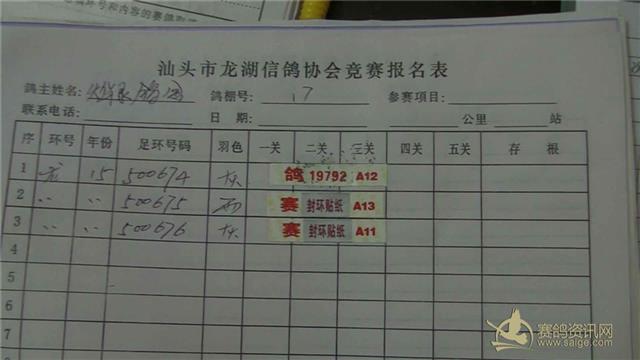 环号和内容的赛鸽
汕头市龙湖信鸽协会竞赛报名表
鸽主姓名: 鸽棚号: 17 参赛项目:
联系电话: 日期: 公里 站
序 环号 年份 足环号码 羽色 一关 二关 三关 四关 五关 存根
1 15 500674 灰 鸽 19792 A12
2 〃 〃 500675 赛 封环贴纸 A13
3 〃 〃 500676 灰 赛 封环贴纸 A11
4
5
6
7
赛鸽资讯网
www.saige.com